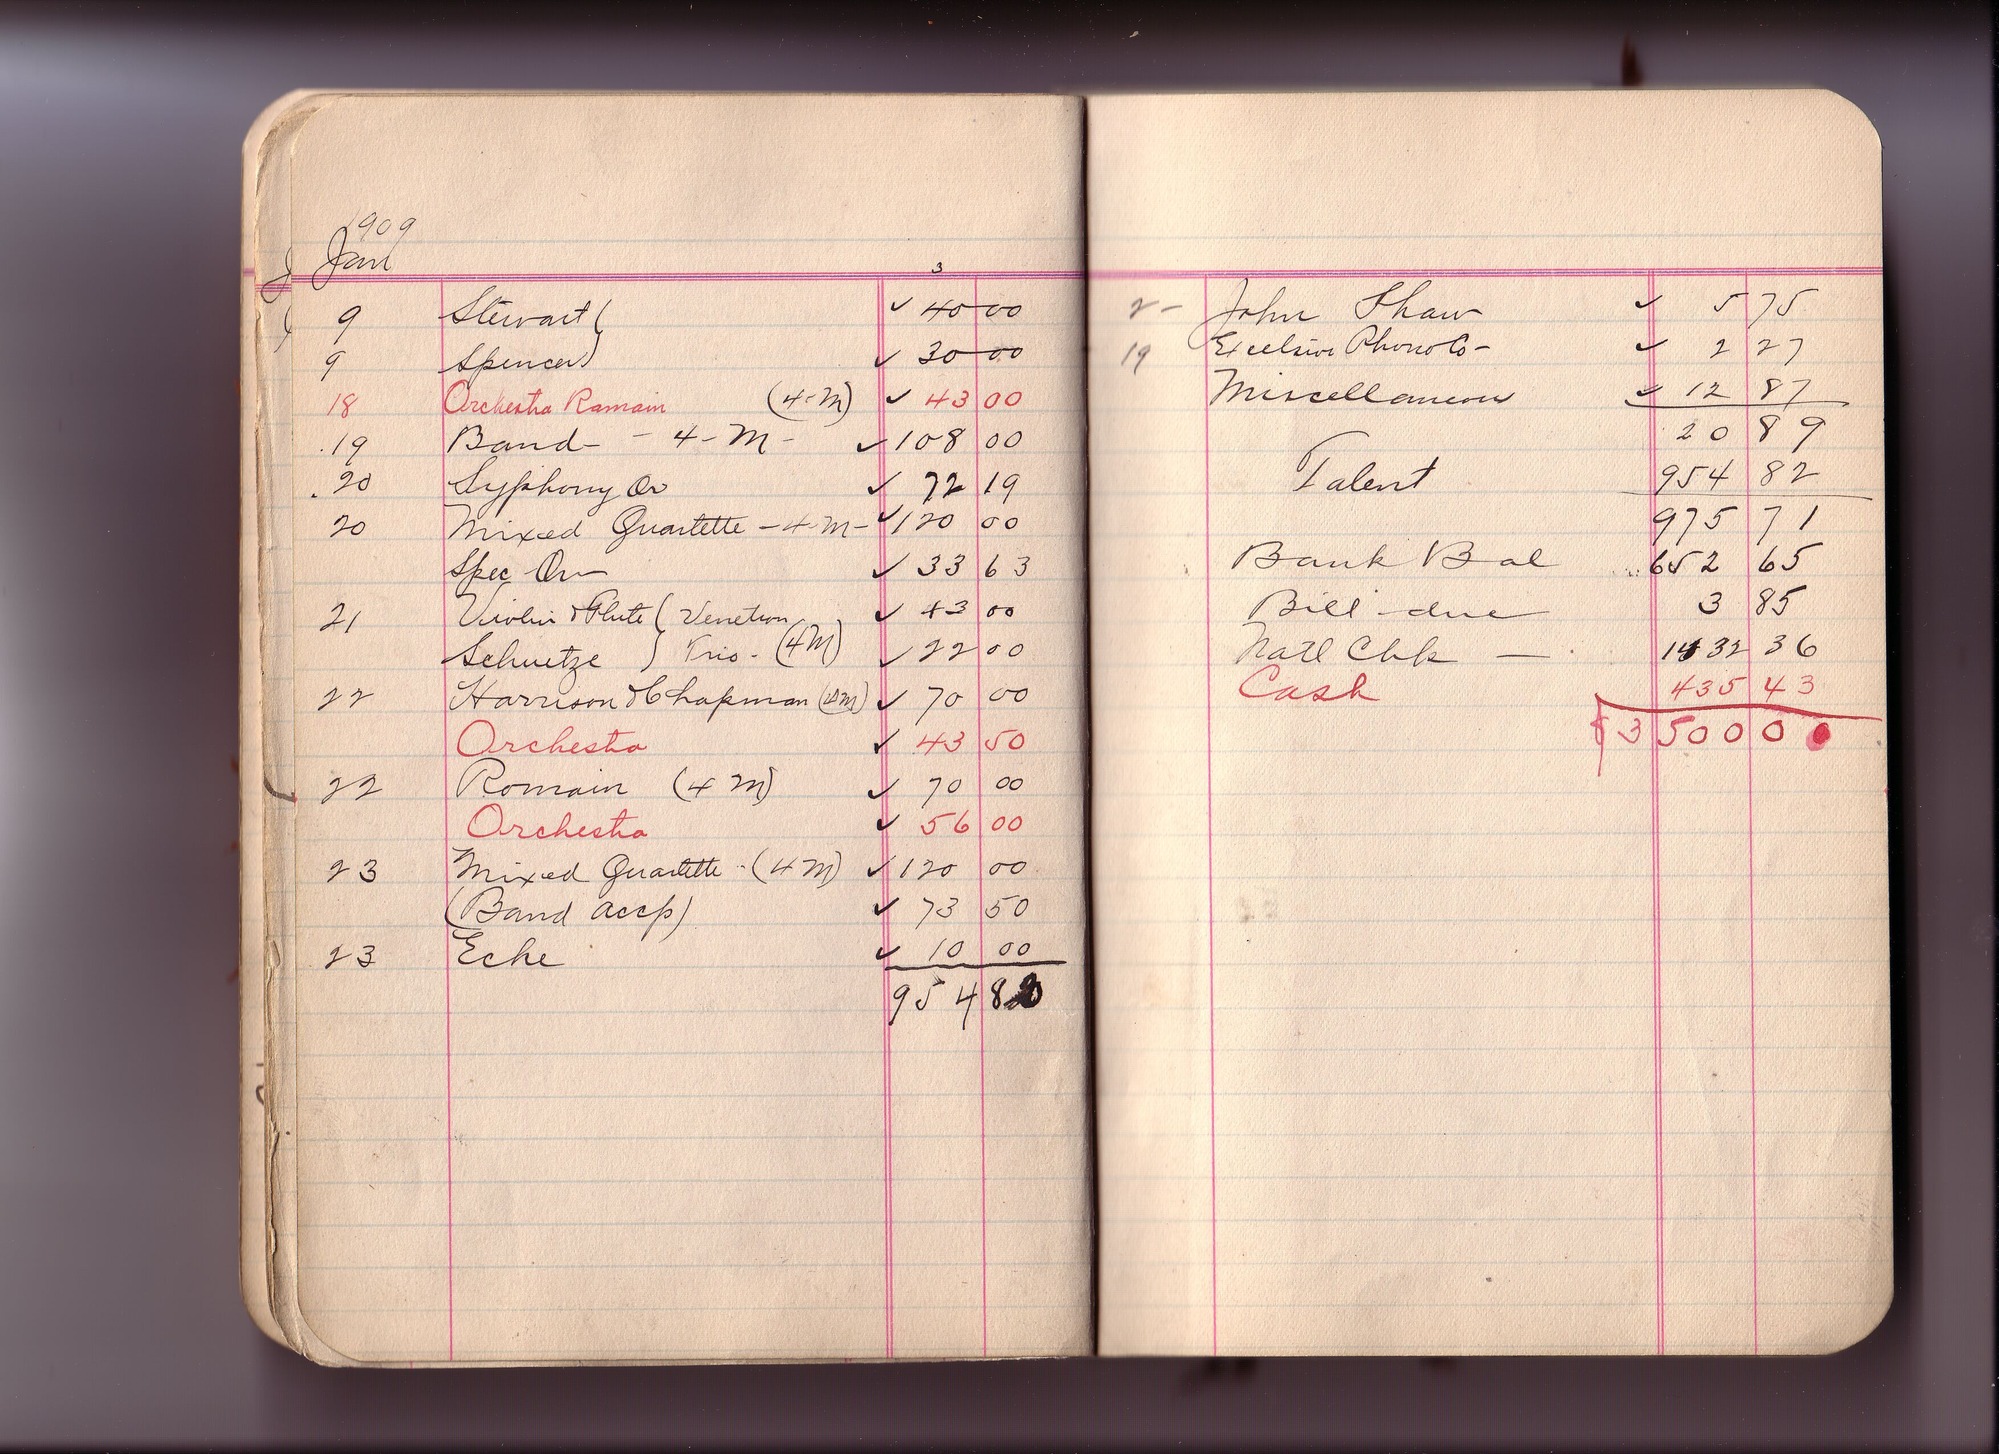 1909
Jan
3
9 Stewart ( ✓ 40 00
9 Spencer ) ✓ 30 00
18 Orchestra Romain (4-M) ✓ 43 00
19 Band - 4-M- ✓ 108 00
20 Syphony Or ✓ 72 19
20 Mixed Quartette -4-M- ✓ 120 00
Spec Or ✓ 33 63
21 Violin & Flute ( Venetian ✓ 43 00
Schuetze ) Trio - (4M) ✓ 22 00
22 Harrison & Chapman (4M) ✓ 70 00
Orchestra ✓ 43 50
22 Romain (4 M) ✓ 70 00
Orchestra ✓ 56 00
23 Mixed Quartette - (4 M) ✓ 120 00
(Band accp) ✓ 73 50
23 Eche ✓ 10 00
954 82
2- John Shaw ✓ 5 75
19 Excelsior Phono Co- ✓ 2 27
Miscellaneous ✓ 12 87
20 89
Talent 954 82
975 71
Bank Bal 652 65
Bill-due 3 85
Natl Chk — 1432 36
Cash 435 43
$ 3500 00